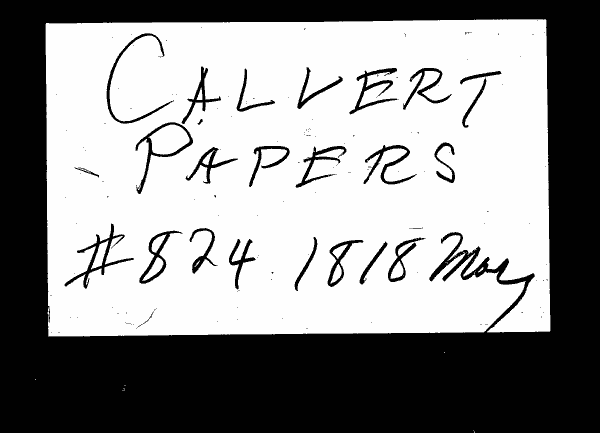 CALVERT
PAPERS
#824 1818 May